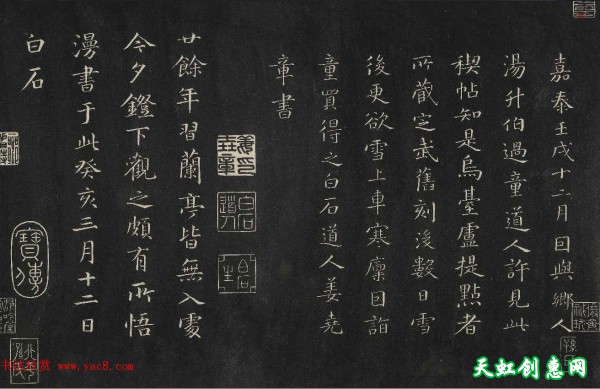 嘉泰壬戌十二月因與鄉人
湯升伯過童道人許見此
禊帖知是烏臺盧提點者
所藏定武舊刻後數日雪
後更欲雪上車寒凜因詣
童買得之白石道人姜堯
章書
廿餘年習蘭亭皆無入處
今夕鐙下觀之頗有所悟
漫書于此癸亥三月十二日
白石
白石
道人
寶傳
www.yac8.com
天虹创惠网